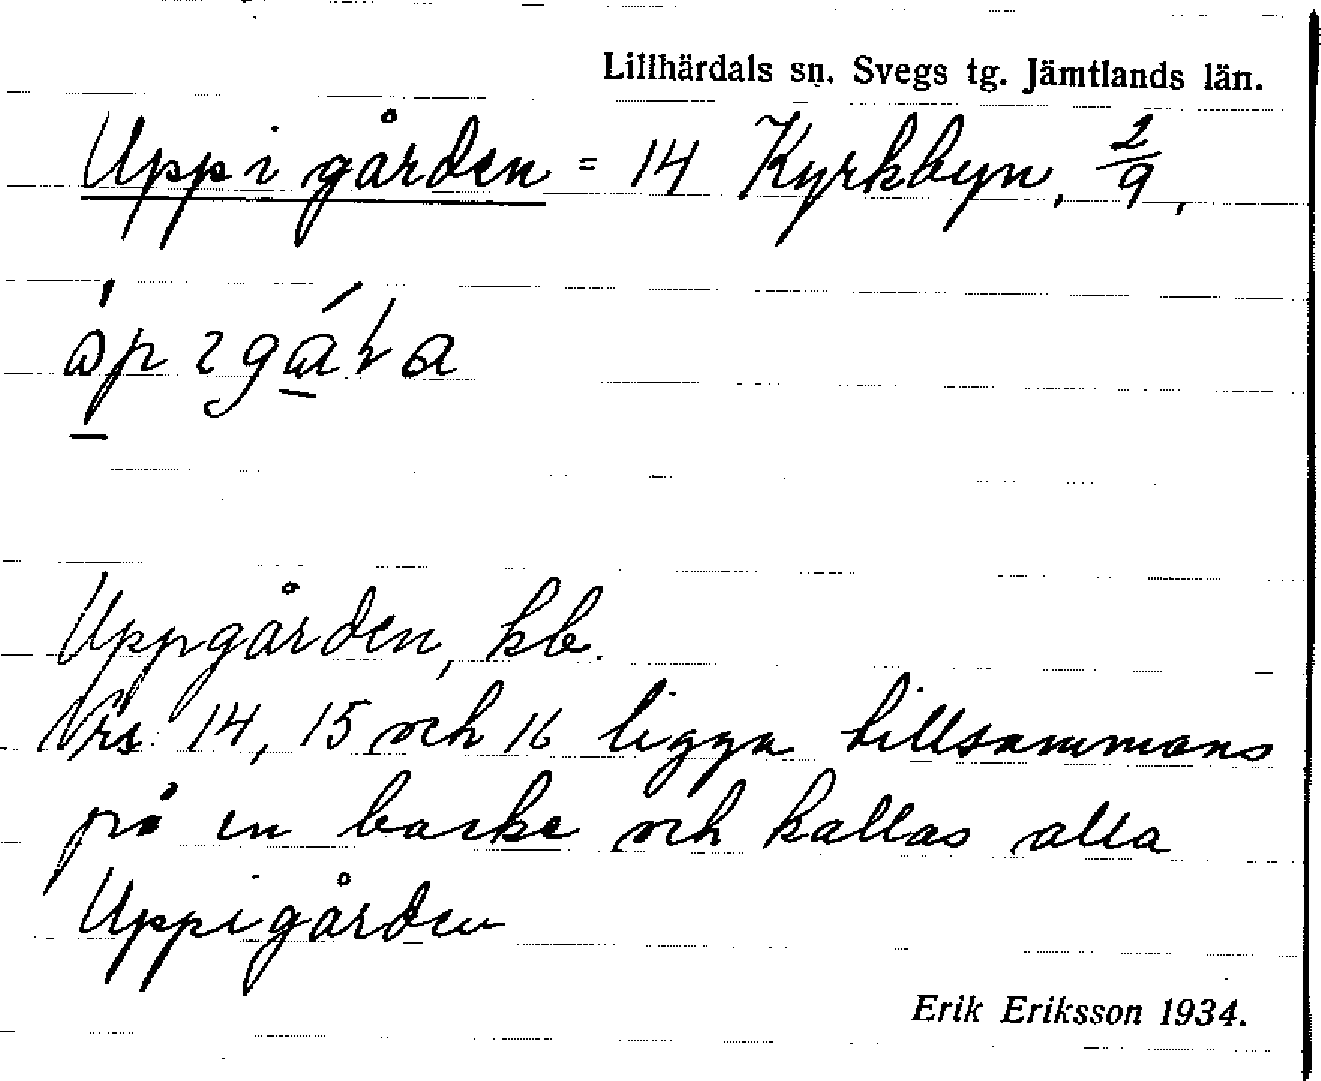 Lillhärdals sn. Svegs tg. Jämtlands län.
Uppigården = 14 Kyrkbyn, 2/9,
Uppgården, kb.
Nrs 14, 15 och 16 ligga tillsammans
på en backe och kallas alla
Uppigården
Erik Eriksson 1934.